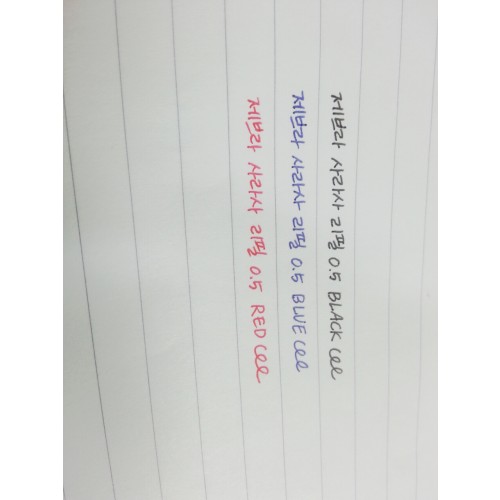 제브라 사라사 리필 0.5 BLACK
제브라 사라사 리필 0.5 BLUE
제브라 사라사 리필 0.5 RED